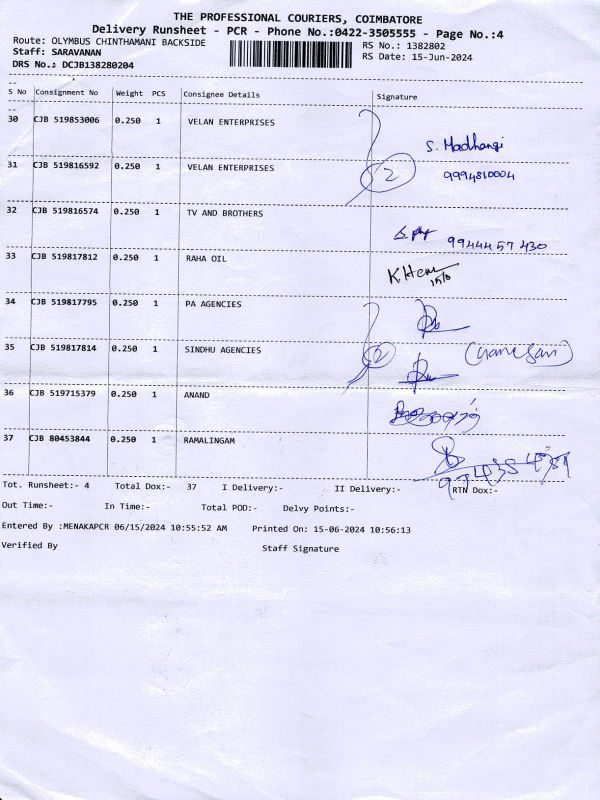 THE PROFESSIONAL COURIERS, COIMBATORE
Delivery Runsheet - PCR - Phone No.:0422-3505555 - Page No.:4
Route: OLYMBUS CHINTHAMANI BACKSIDE
RS No.: 1382802
Staff: SARAVANAN
RS Date: 15-Jun-2024
DRS No.: DCJB138280204
S No Consignment No Weight PCS Consignee Details Signature
30 CJB 519853006 0.250 1 VELAN ENTERPRISES
S. Madhangi
31 CJB 519816592 0.250 1 VELAN ENTERPRISES 2 9994810004
32 CJB 519816574 0.250 1 TV AND BROTHERS
9944457430
33 CJB 519817812 0.250 1 RAHA OIL K.Hem
15/6
34 CJB 519817795 0.250 1 PA AGENCIES
35 CJB 519817814 0.250 1 SINDHU AGENCIES 2 (Ganesan)
36 CJB 519715379 0.250 1 ANAND
37 CJB 80453844 0.250 1 RAMALINGAM
Tot. Runsheet:- 4 Total Dox:- 37 I Delivery:- II Delivery:- RTN Dox:-
Out Time:- In Time:- Total POD:- Delvy Points:-
Entered By :MENAKAPCR 06/15/2024 10:55:52 AM Printed On: 15-06-2024 10:56:13
Verified By Staff Signature